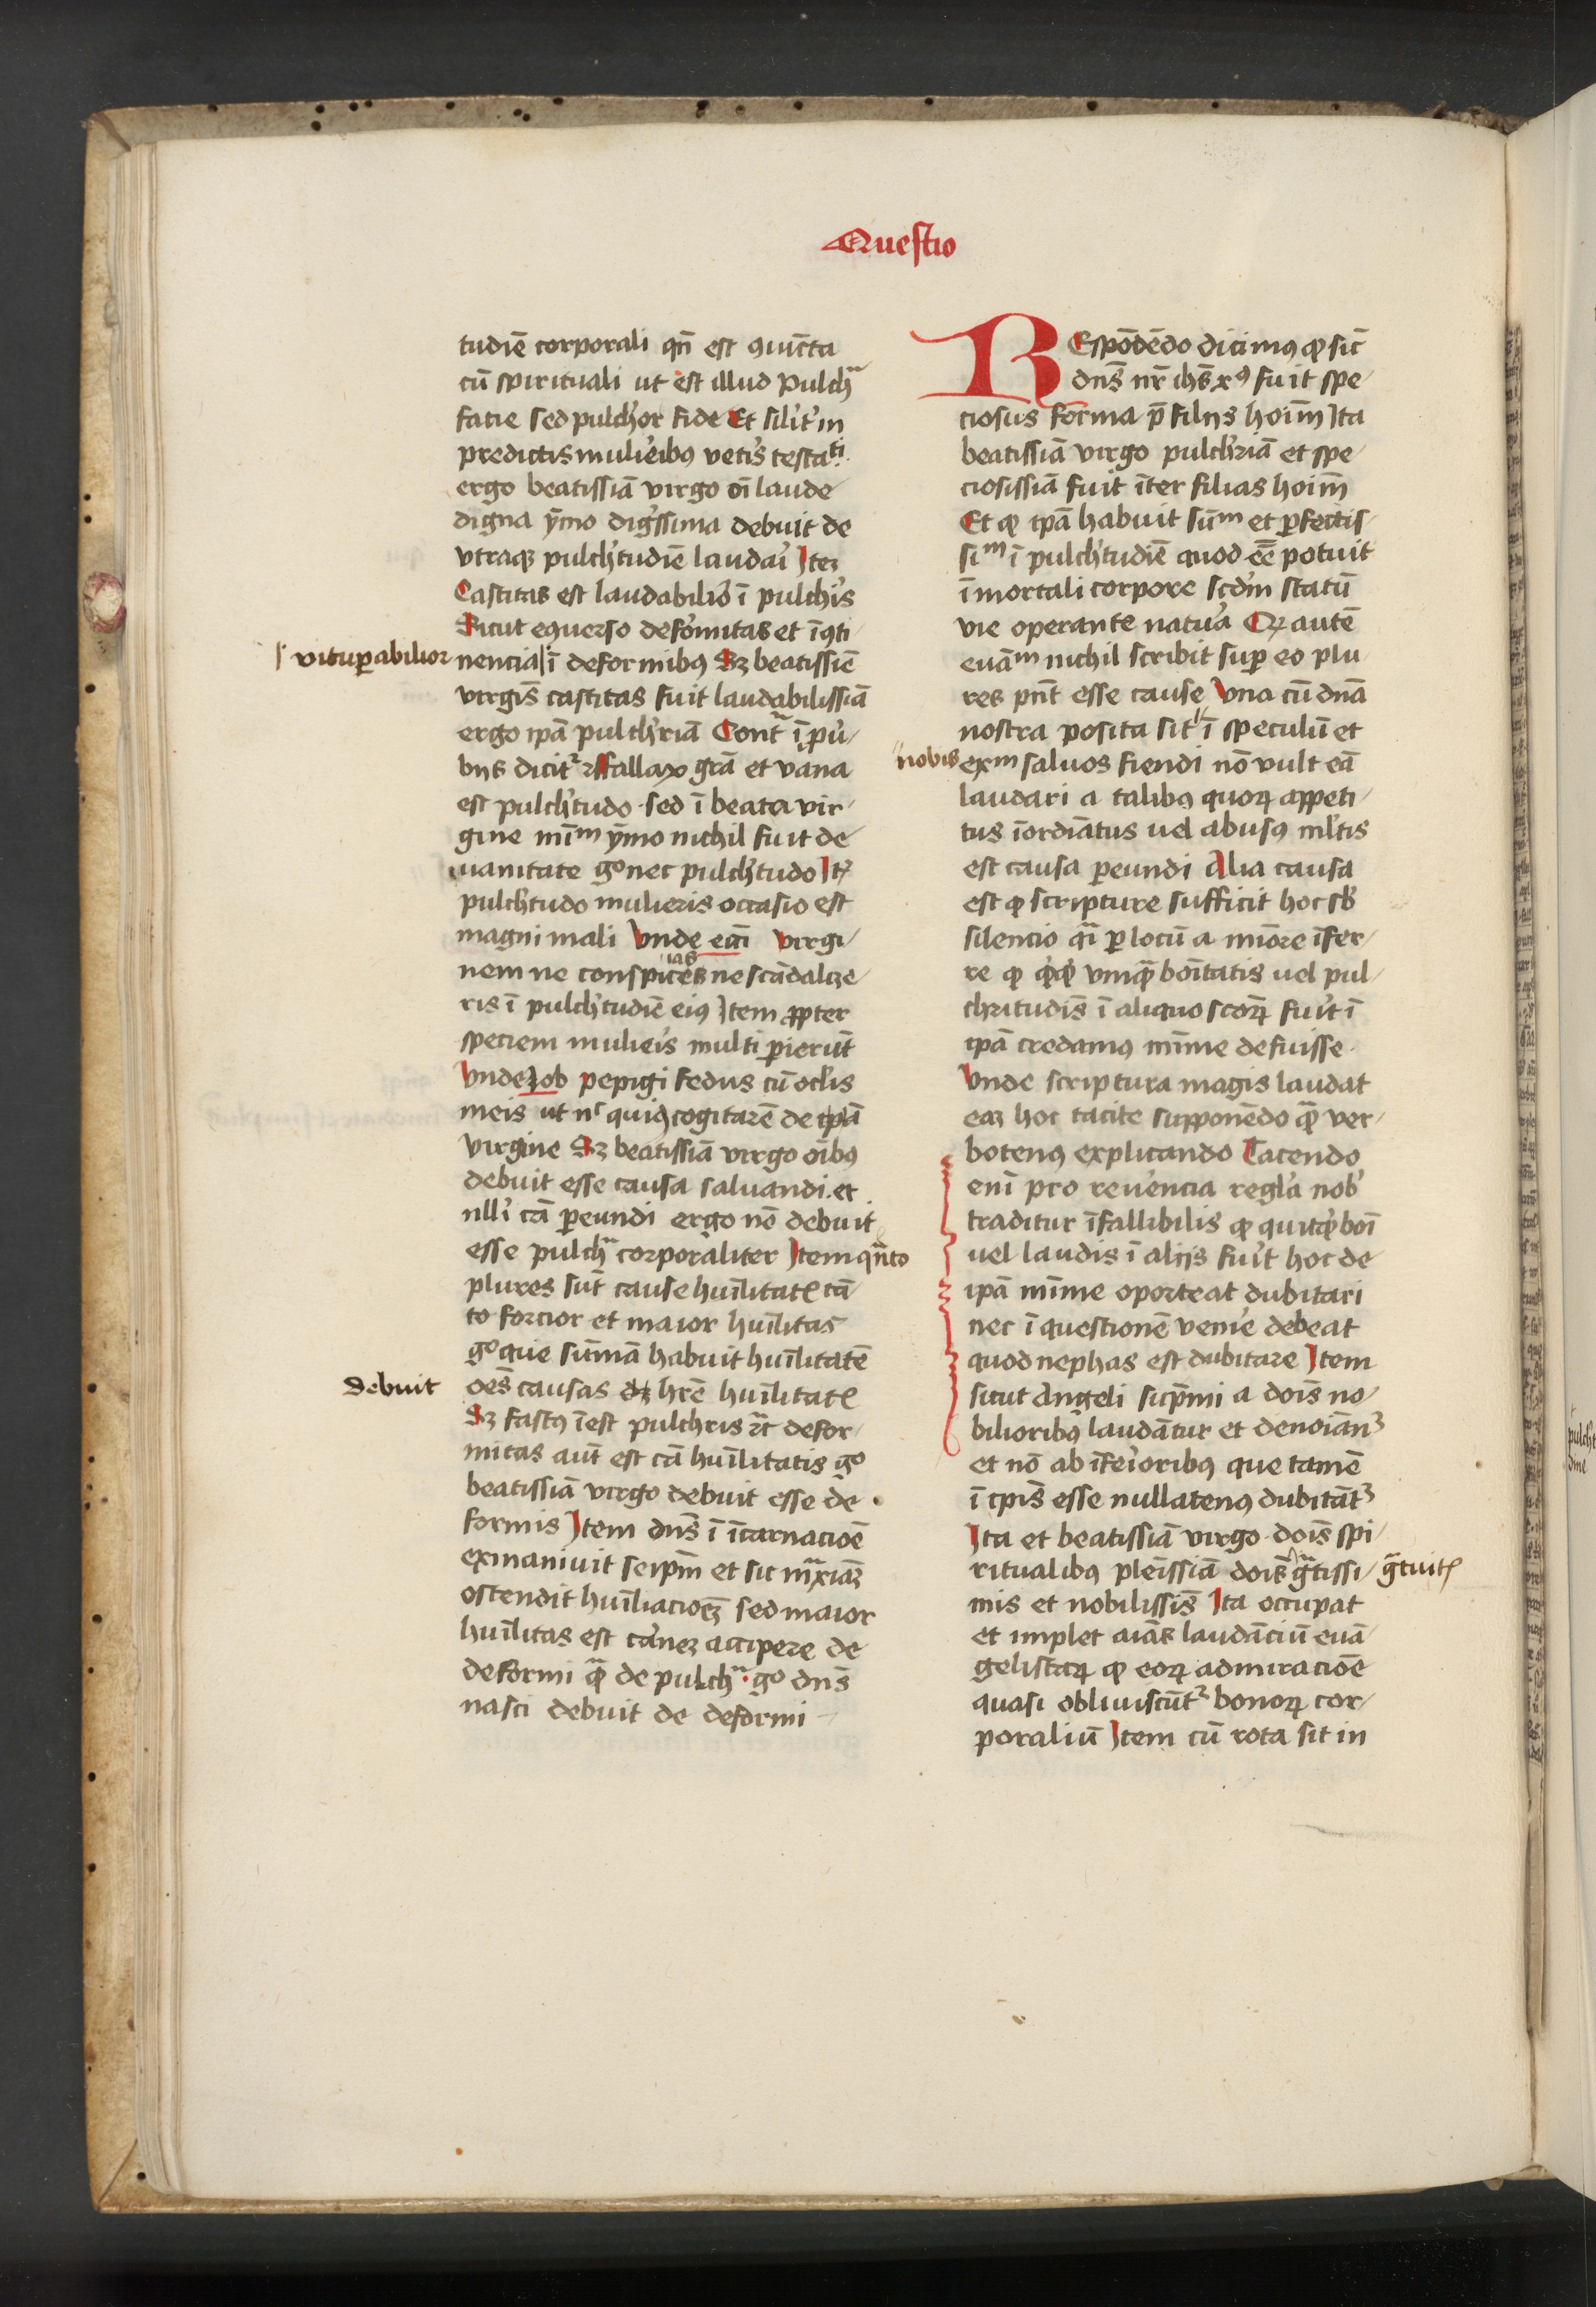 Questio
tudiē corporali qn̄ est ꝯiūcta
cū spirituali ut est illud Pulchͣ
facie sed pulchͥor fide Et silitͥ in
predictis mulieͥibꝫ vetͥis testaᵗⁱ
ergo beatissīa virgo oī laude
digna ymo digͥssima debuit de
vtraqꝫ pulchͥtudīe laudaͥi Iteꝫ
Castitas est laudabilioͥ ī pulchͥis
Sicut eqͥuerso defoͥmitas et īꝯti
vituꝑabilior
nencia ī deformibꝫ Sꝫ beatissīe
virgīs castitas fuit laudabilissīa
ergo ip̄a pulchͥrīa Contͣ ī ꝓuͥ
bijs dicitᷣ ꝛͨ fallax gr̄a et vana
est pulchͥtudo sed ī beata vir
gine nīᵐ ymo nichil fuit de
uanitate gᵒ nec pulchͥtudo Itꝫ
pulchͥtudo mulieris occasio est
magni mali Vnde ecc̄i virgi
ias
nem ne conspices ne scādalize
ris ī pulchͥtudīe eiꝰ Item ꝓpter
speciem mulieͥis multi ꝑierūt
Vnde Iob pepigi fedus cū oclͥis
meis ut nᶜ quidꝫ cogitarē de ip̄a
virgine Sꝫ beatissīa virgo oībꝫ
debuit esse causa saluandi et
nllͥi cā ꝑeundi ergo nō debuit
esse pulchͣ corporaliter Item qͣn̄to
plures sūt cause hūilitatꝭ tā
to forcior et maior hūilitas
gᵒ que sūmā habuit hūilitatē
debuit
oēs causas dꝫ hr̄e hūilitatꝭ
Sꝫ fastꝰ īest pulchris ꝛͨ defor
mitas aūt est cā hūilitatis gᵒ
beatissīa virgo debuit esse de
formis Item dn̄s ī īcarnacioē
exinaniuit seip̄m et sic mͣxīaꝫ
ostendit hūiliacioēꝫ sed maior
hūilitas est caͥneꝫ accipere de
deformi qͣꝫ de pulchͣ gᵒ dn̄s
nasci debuit de deformi
REspōdēdo dicimꝰ ꝙ sic̄
dn̄s nr̄ ih̄s xꝰ fuit spe
ciosus forma p̄ filijs hoīm Ita
beatissīa virgo pulchͥrīa et spe
ciosissīa fuit īter filias hoīm
Et ꝙ ip̄a habuit sūᵐ et ꝑfectis
siᵐ ī pulchͥtudīe quod eē potuit
ī mortali corpore scd̄m statū
vie operante natuͥa Qꝛ autē
euāᵐ nichil scribit suꝑ eo plu
res pn̄t esse cause Vna cū dn̄a
nostra posita sit ī speculū et
nobis
exᵐ saluos fiendi nō vult eā
laudari a talibꝫ quoꝝ appeti
tus īordīatus uel abusꝰ mlͥtis
est causa ꝑeundi Alia causa
est ꝙ scripture sufficit hoc sbͥ
silencio qͥa ꝑ locū a mīore īfer
re ꝙ qͥcqͥd vnqͣꝫ boītatis uel pul
chritudīs ī aliquo scōꝝ fuͥit ī
ip̄a credamꝰ mīme defuisse
Vnde scriptura magis laudat
eaꝫ hoc tacite supponēdo qͣꝫ ver
botenꝰ explicando Tacendo
enī pro reueͥencia reglͥa nobͥ
traditur īfallibilis ꝙ quicqͥd boī
uel laudis ī alijs fuͥit hoc de
ip̄a mīme oporteat dubitari
nec ī questionē venͥie debeat
quod nephas est dubitare Item
sicut Angeli sup̄mi a doīs no
bilioribꝫ laudātur et denoīanᷣ
et nō ab īfeͥioribꝫ que tamē
ī ip̄is esse nullatenꝰ dubitātᷣ
Ita et beatissīa virgo doīs spi
ritualibꝫ pleīssīa doīs gͣtissi
gͣtuitꝭ
mis et nobilissīs Ita occupat
et implet aīas laudāciū euā
gelistaꝝ ꝙ eoꝝ admiracioē
quasi obliuiscūtᷣ bonoꝝ cor
poraliū Item cū rota sit in